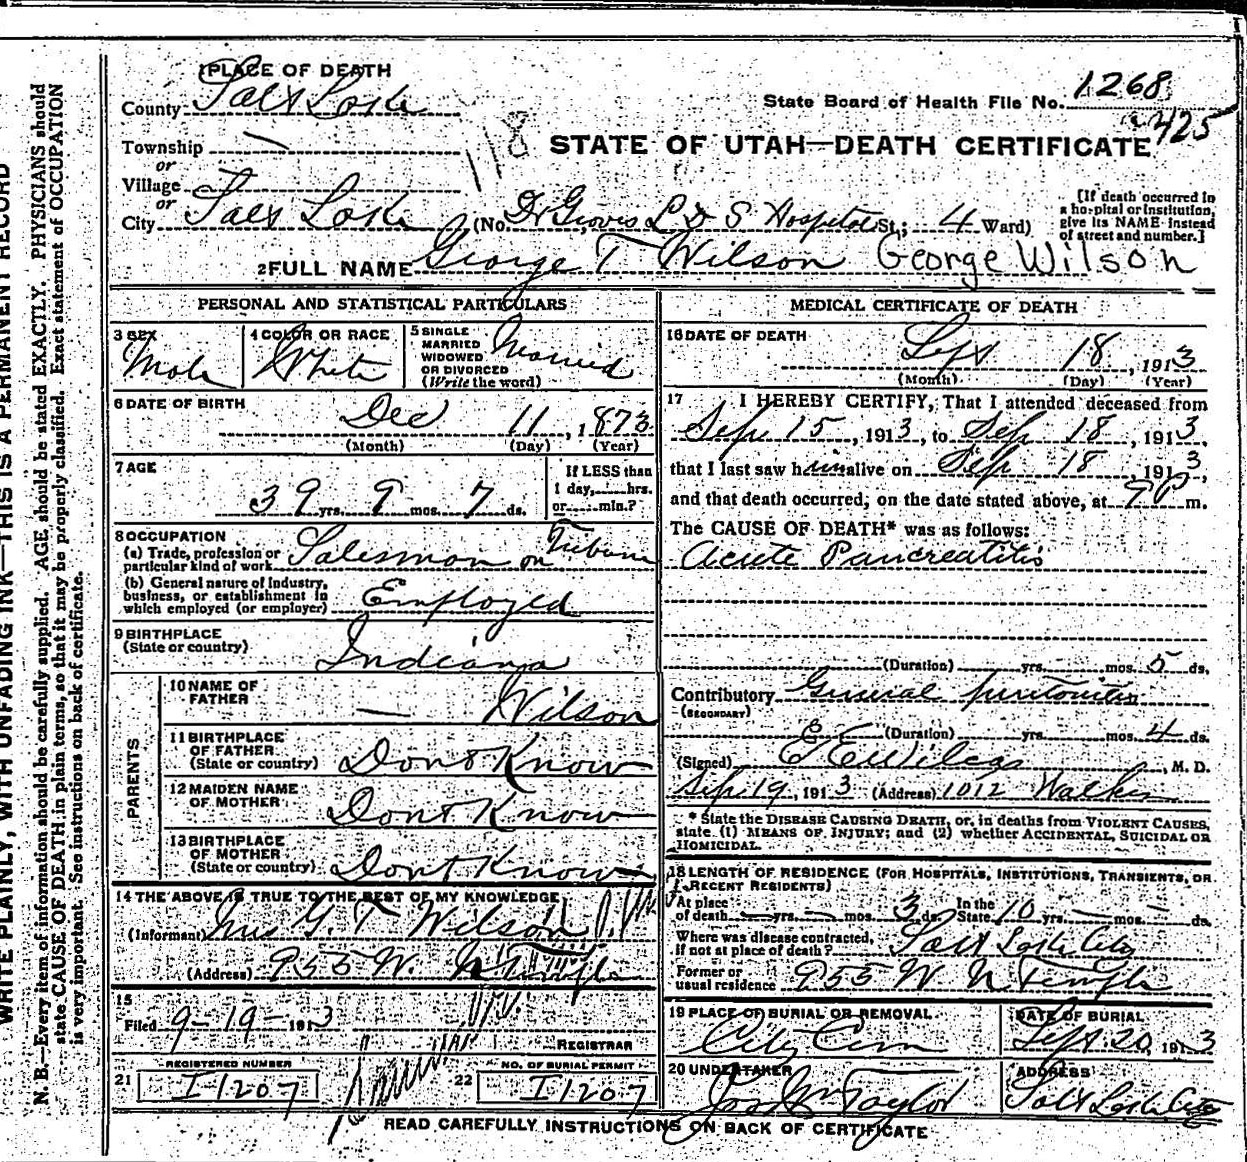 WRITE PLAINLY, WITH UNFADING INK—THIS IS A PERMANENT RECORD
N. B.—Every item of information should be carefully supplied. AGE should be stated EXACTLY. PHYSICIANS should
state CAUSE OF DEATH in plain terms, so that it may be properly classified. Exact statement of OCCUPATION
is very important. See instructions on back of certificate.
1 PLACE OF DEATH
County Salt Lake
State Board of Health File No. 1268
425
118
Township —
or
Village
or
City Salt Lake
STATE OF UTAH—DEATH CERTIFICATE
(No. Dr Groves L D S Hospital St.; 4 Ward)
[If death occurred in
a hospital or institution,
give its NAME instead
of street and number.]
2 FULL NAME George T Wilson George Wilson
PERSONAL AND STATISTICAL PARTICULARS
3 SEX
Male
4 COLOR OR RACE
White
5 SINGLE
MARRIED
WIDOWED
OR DIVORCED
(Write the word)
Married
6 DATE OF BIRTH
Dec 11, 1873
(Month) (Day) (Year)
7 AGE
39 yrs. 9 mos. 7 ds.
If LESS than
1 day, hrs.
or min.?
8 OCCUPATION
(a) Trade, profession or
particular kind of work Salesman on Tribune
(b) General nature of Industry,
business, or establishment in
which employed (or employer) Employed
9 BIRTHPLACE
(State or country) Indiana
PARENTS
10 NAME OF
FATHER — Wilson
11 BIRTHPLACE
OF FATHER
(State or country) Dont Know
12 MAIDEN NAME
OF MOTHER Dont Know
13 BIRTHPLACE
OF MOTHER
(State or country) Dont Know
14 THE ABOVE IS TRUE TO THE BEST OF MY KNOWLEDGE
(Informant) Mrs G. T. Wilson
(Address) 955 W. N Temple
15
Filed 9-19-1913
REGISTRAR
REGISTERED NUMBER
21 I1207
NO. OF BURIAL PERMIT
22 I1207
MEDICAL CERTIFICATE OF DEATH
16 DATE OF DEATH
Sept 18, 1913
(Month) (Day) (Year)
17 I HEREBY CERTIFY, That I attended deceased from
Sep 15, 1913, to Sep 18, 1913,
that I last saw him alive on Sep 18, 1913,
and that death occurred, on the date stated above, at 9 P m.
The CAUSE OF DEATH* was as follows:
Acute Pancreatitis
(Duration) yrs. mos. 5 ds.
Contributory General peritonitis
(SECONDARY)
(Duration) yrs. mos. 4 ds.
(Signed) , M. D.
Sep 19, 1913 (Address) 1012 Walker
* State the DISEASE CAUSING DEATH, or, in deaths from VIOLENT CAUSES,
state (1) MEANS OF INJURY; and (2) whether ACCIDENTAL, SUICIDAL OR
HOMICIDAL.
18 LENGTH OF RESIDENCE (FOR HOSPITALS, INSTITUTIONS, TRANSIENTS, OR
RECENT RESIDENTS)
At place
of death — yrs. — mos. 3 ds.
In the
State 10 yrs. — mos. — ds.
Where was disease contracted,
if not at place of death? Salt Lake City
Former or
usual residence 955 W N Temple
19 PLACE OF BURIAL OR REMOVAL
City Cem
DATE OF BURIAL
Sept 20, 1913
20 UNDERTAKER
Jos Wm Taylor
ADDRESS
Salt Lake City
READ CAREFULLY INSTRUCTIONS ON BACK OF CERTIFICATE